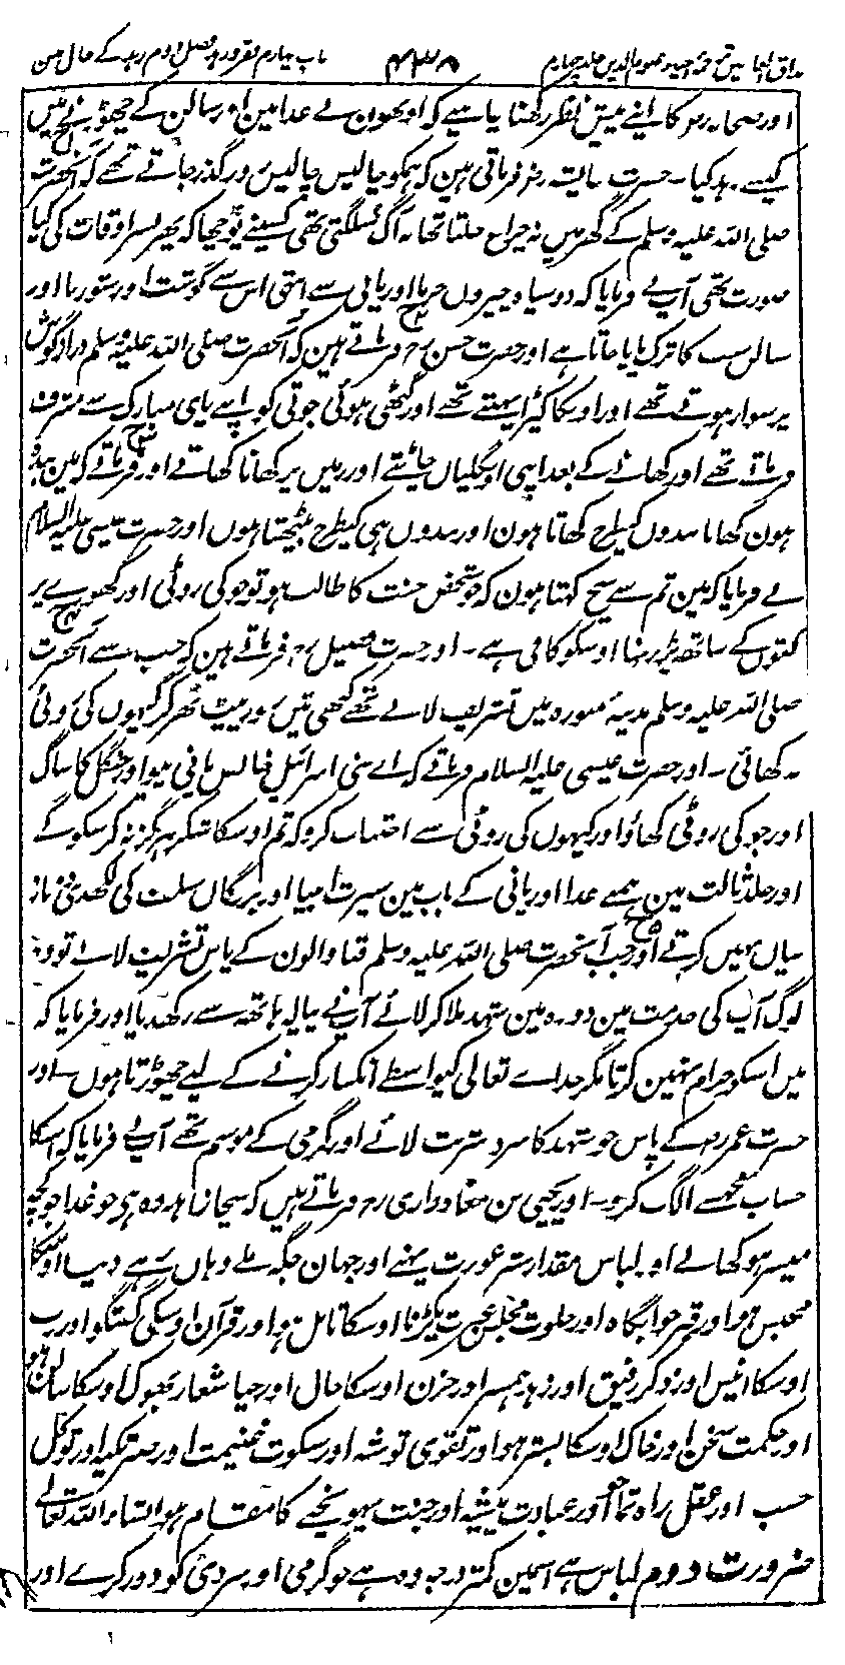 مذاق العارفین ترجمہ احیاء علوم الدین جلد چہارم باب چہارم فقر و زہد فصل دوم زہد کے حال میں
اور صحابہ رضہ کا اپنے پیش نظر رکھنا چاہیے کہ اونھون نے غدا مین اور سالن کے چھوڑنے میں
کیسے زہد کیا۔ حضرت عایشہ رضہ فرماتی ہین کہ ہمکو چالیس چالیس روز گذر جاتے تھے کہ آنحضرت
صلی اللہ علیہ وسلم کے گھر میں نہ چراغ جلتا تھا نہ آگ سُلگتی تھی کسینے پوچھا کہ پھر بسر اوقات کی کیا
صورت تھی آپ نے فرمایا کہ دو سیاہ چیزوں خرما اور پانی سے انتہی اس سے گوشت اور شوربا اور
سالن سب کا ترک پایا جاتا ہے اور حضرت حسن رح فرماتے ہین کہ آنحضرت صلی اللہ علیہ وسلم درازگوش
پر سوار ہوتے تھے اور اون کا کپڑا پہنتے تھے اور گٹھی ہوئی جوتی کو اپنے پای مبارک سے مشرف
فرماتے تھے اور کھانے کے بعد اپنی اونگلیاں چاٹتے اور زمیں پر کھانا کھاتے اور فرماتے کہ مین بندہ
ہون کھانا بندوں کیطرح کھاتا ہون اور بندوں ہی کیطرح بیٹھتا ہوں اور حضرت عیسیٰ علیہ السلام
نے فرمایا کہ مین تم سے سچ کہتا ہون کہ جو شخص جنت کا طالب ہو تو جو کی روٹی اور گھورے پر
کتوں کے ساتھ پڑ رہنا اوسکو کافی ہے۔ اور حضرت فضیل رح فرماتے ہین کہ جب سے آنحضرت
صلی اللہ علیہ وسلم مدینہ منورہ میں تشریف لائے تھے کبھی تیں روز پیٹ بھر کر گیہوں کی روٹی
نہ کھائی۔ اور حضرت عیسی علیہ السلام فرماتے کہ اے بنی اسرائیل خالص پانی پیو اور جنگل کا ساگ
اور جو کی روٹی کھاؤ اور گیہوں کی روٹی سے اجتناب کرو کہ تم اوسکا شکر ہرگز نہ کر سکو گے
اور جلد ثالث مین ہمنے غدا اور پانی کے باب مین سیرت انبیا اور بزرگاں سلف کی لکھدی
بیاں نہیں کرتے اور جب آنحضرت صلی اللہ علیہ وسلم قبا والون کے پاس تشریف لائے تو وہ
لوگ آپ کی خدمت مین دودہ مین شہد ملا کر لائے آپ نے پیالہ ہاتھ سے رکھدیا اور فرمایا کہ
میں اسکو حرام نہین کرتا مگر خداے تعالی کیواسطے انکسار کرنے کے لیے چھوڑتا ہوں اور
حضرت عمر رضہ کے پاس جو شہد کا سرد شربت لائے اور گرمی کے موسم تھے آپ نے فرمایا کہ اسکا
حساب مجھسے الگ کرو۔ اور یحیی بن معاذ رازی رح فرماتے ہیں کہ سچا زاہد وہ ہی جو غدا جو کچھ
میسر ہو کھالے اور لباس مقدار ستر عورت پہنے اور جہان جگہ ملے وہاں رہے دنیا اوسکا
محبس ہو اور قبر خوابگاہ اور خلوت مجلس عبرت پکڑنا اوسکا تامل ہو اور قرآن اوسکی گفتگو اور رب
اوسکا انیس اور ذکر رفیق اور زہد ہمسر اور حزن اوسکا حال اور حیا شعار بھوک اوسکا سالن ہو
اور حکمت سخن اور خاک اوسکا بستر ہو اور تقوی توشہ اور سکوت غنیمت اور صبر تکیہ اور توکل
حسب اور عقل راہ نما اور عبادت پیشہ اور جنت پہونچنے کا مقام ہو انشاء اللہ تعالیٰ
ضرورت دوم لباس ہے اسمین کمتر درجہ وہ ہے جو گرمی اور سردی کو دور کرے اور